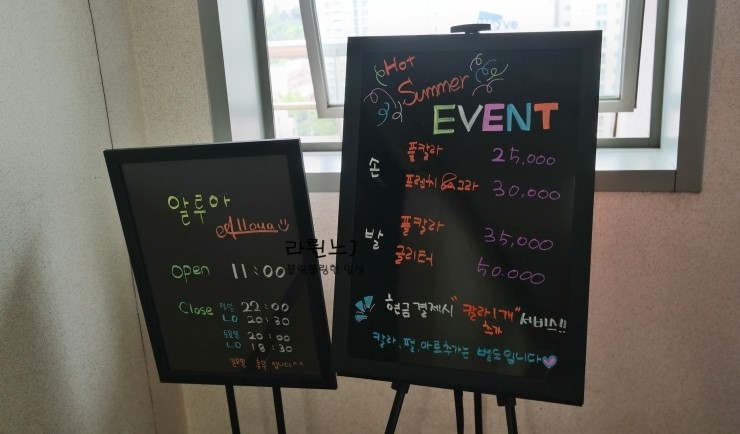 알투아
Alloua
Open 11:00
Close 평일 22:00
LO 20:30
토요일 20:00
LO 18:30
일요일 휴무 입니다^^
Hot
Summer
EVENT
손 풀칼라 25,000
프렌치 그라 30,000
발 풀칼라 35,000
글리터 50.000
현금결제시 "칼라1개" 서비스!!
추가
칼라, 펄, 아트추가는 별도입니다
라뷘느J